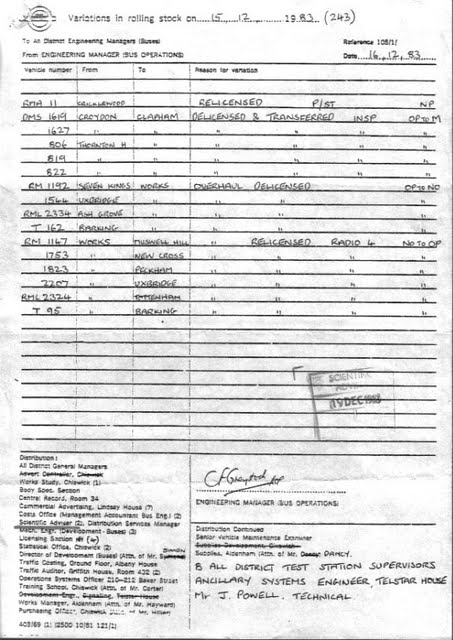 Variations in rolling stock on 15. 12. 1983 (243)
To All District Engineering Managers (Buses) Reference 105/1/
From ENGINEERING MANAGER (BUS OPERATIONS) Date 16.12.83
Vehicle number From To Reason for variation
RMA 11 CRICKLEWOOD RELICENSED P/ST NP
DMS 1619 CROYDON CLAPHAM DELICENSED & TRANSFERRED INSP OP TO M
1627 " " " " " "
806 THORNTON H " " " " "
819 " " " " " "
822 " " " " " "
RM 1192 SEVEN KINGS WORKS OVERHAUL DELICENSED OP TO NO
1564 UXBRIDGE " " " "
RML 2334 ASH GROVE " " " "
T 162 BARKING " " " "
RM 1147 WORKS MUSWELL HILL " RELICENSED RADIO 4 NO TO OP
1753 " NEW CROSS " " " "
1823 " PECKHAM " " " "
2207 " UXBRIDGE " " " "
RML 2324 " TOTTENHAM " " " "
T 95 " BARKING " " " "
SCIENTIFIC
ADVISER
19 DEC 1983
Distribution:
All District General Managers
Advert Controller, Chiswick
Works Study, Chiswick (1)
Body Spec. Section
Central Record, Room 34
Commercial Advertising, Lindsay House (7)
Costs Office Management Accountant Bus Eng.l (2)
Scientific Adviser (2), Distribution Services Manager
Mech. Engr. (Development - Buses) (3)
Licensing Section
Statistical Office, Chiswick (2)
Director of Development (Buses) (Attn. of Mr.
Traffic Costing, Ground Floor, Albany House
Traffic Auditor, Griffith House, Room 432 (2)
Operations Systems Officer 210-212 Baker Street
Training School, Chiswick (Attn. of Mr. Carter)
Development Engr. Signaling, Telstar House
Works Manager, Aldenham (Attn. of Mr. Hayward)
Purchasing Officer, Chiswick
403/69 (1) (2500 10/81 121/1)
ENGINEERING MANAGER (BUS OPERATIONS)
Distribution Continued
Senior Vehicle Maintenance Examiner
Supplies Development, Chiswick
Supplies, Aldenham (Attn. of Mr. DANCY.
8 ALL DISTRICT TEST STATION SUPERVISORS
ANCILLARY SYSTEMS ENGINEER TELSTAR HOUSE
Mr J. POWELL. TECHNICAL.